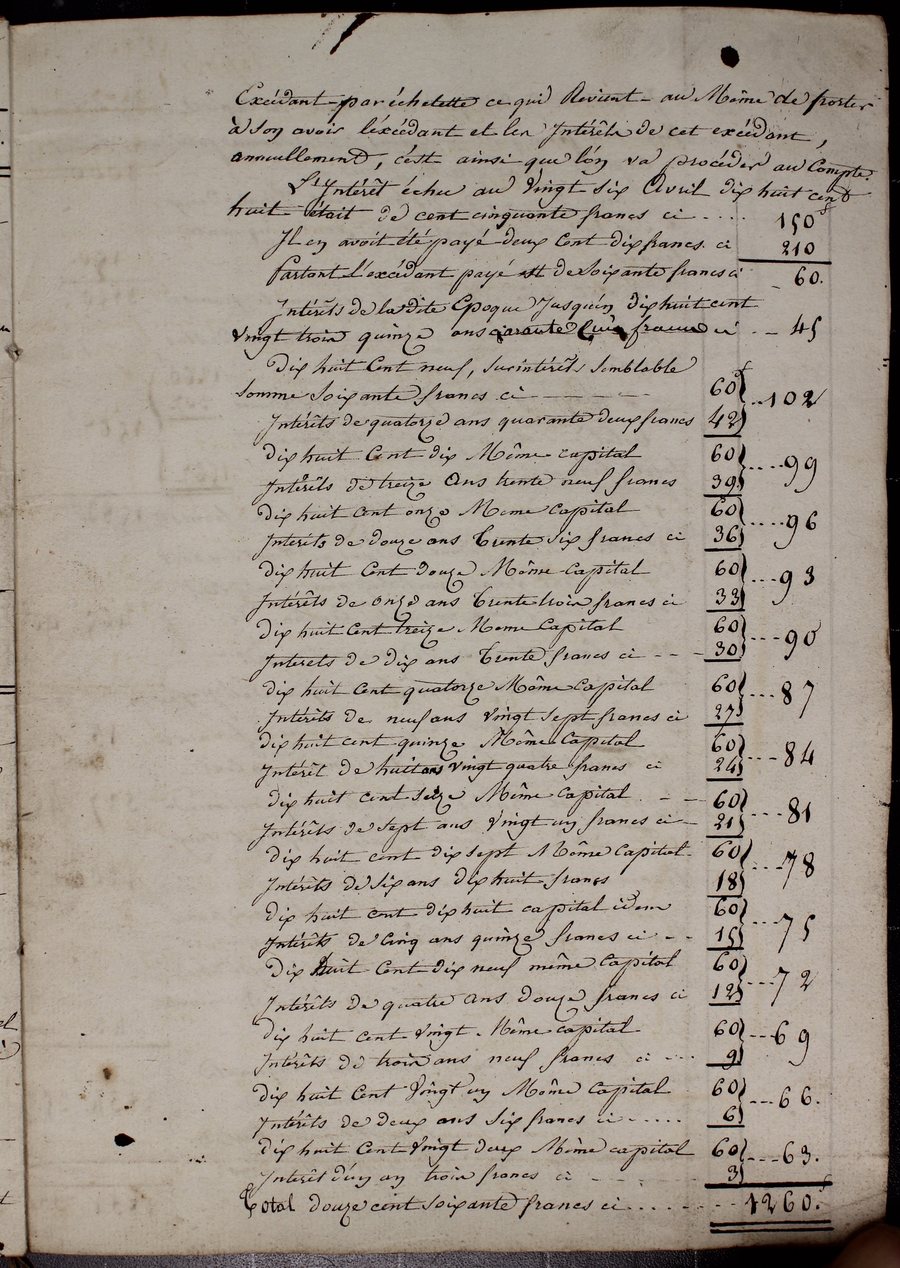 Excédant par échelette ce qui Revient au Même de porter
à son avoir l'éxcédant et les Intérêts de cet excédant,
annuellement, c'est ainsi que l'on va procéder au Compte.
L'Intérêt échu au Vingt six Avril dix huit cent
huit était de cent cinquante francs ci .... 150f
Il en avoit été payé deux Cent dix francs ci 210
Partant l'excédant payé est de Soixante francs ci - 60.
Intérêts de la dite Epoque Jusqu'en dix huit cent
vingt trois quinze ans quarante Cinq francs ci - - 45
Dix huit Cent neuf, surintérêts Semblable
Somme Soixante francs ci - - - - - - 60f
Intérêts de quatorze ans quarante deux francs 42 ...102
dix huit Cent dix Même capital 60
Intérêts de treize Ans trente neuf francs 39 ....99
dix huit cent onze Meme Capital 60
Interêts de douze ans Trente Six francs ci 36 ....96
dix huit Cent douze Même Capital 60
Intérêts de onze ans Trente trois francs ci 33 ...93
dix huit Cent treize Meme Capital 60
Interets de dix ans Trente francs ci - - - 30 ...90
dix huit Cent quatorze Même Capital 60
Intérêts de neuf ans Vingt Sept francs ci 27 ...87
dix huit cent quinze Même Capital 60
Intérêt de huit ans Vingt quatre francs ci 24 ...84
dix huit cent seize Même Capital - - 60
Intérêts de Sept ans Vingt un francs ci - 21 ...81
dix huit cent dix sept Même Capital 60
Intérêts de Six ans dix huit francs 18 ...78
dix huit cent dix huit capital idem 60
Intérêts de Cinq ans quinze francs ci - - 15 ...75
Dix Huit Cent dix neuf même Capital 60
Intérêts de quatre ans Douze francs ci 12 ...72
dix huit cent Vingt Même capital 60
Intérêts de trois ans neuf francs ci ... 9 ...69
dix huit Cent Vingt un Même Capital 60
Intérêts de deux ans Six francs ci ..... 6 ...66.
dix huit Cent Vingt deux Même capital 60
Interêt d'un an trois francs ci - - - - 3 ...63.
Total douze cent soixante francs ci ........ 1260.f